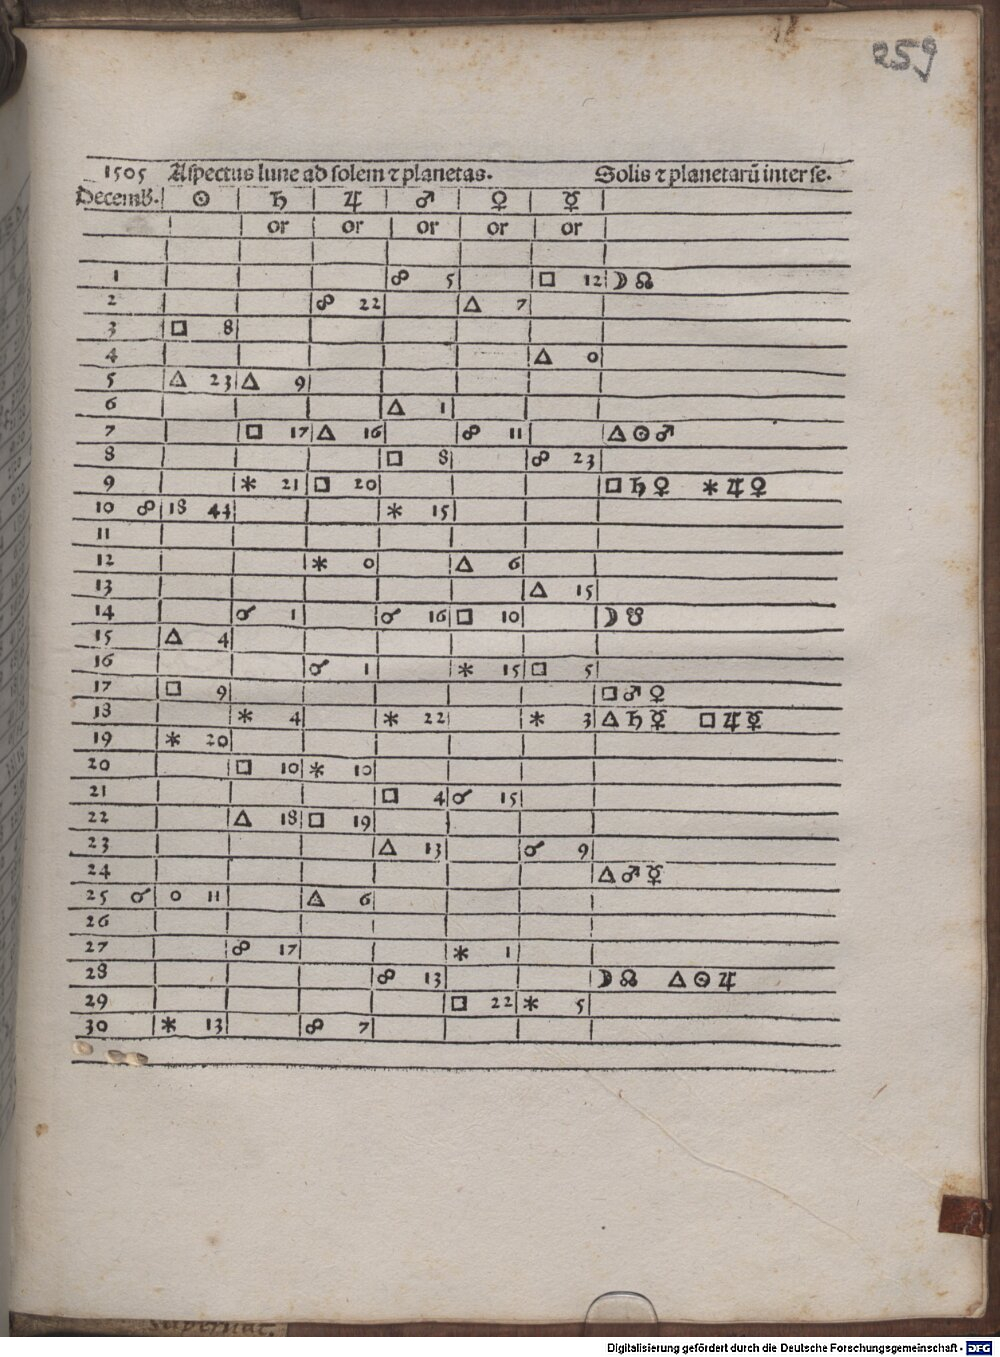 259
1505 Aspectus lune ad solem ⁊ planetas. Solis ⁊ planetarū inter se.
Decemb. ☉ ♄ ♃ ♂ ♀ ☿
or or or or or
1 ☍ 5 □ 12 ☽ ☊
2 ☍ 22 △ 7
3 □ 8
4 △ 0
5 △ 23 △ 9
6 △ 1
7 □ 17 △ 16 ☍ 11 △ ☉ ♂
8 □ 8 ☍ 23
9 ⚹ 21 □ 20 □ ♄ ♀ ⚹ ♃ ♀
10 ☍ 18 44 ⚹ 15
11
12 ⚹ 0 △ 6
13 △ 15
14 ☌ 1 ☌ 16 □ 10 ☽ ☋
15 △ 4
16 ☌ 1 ⚹ 15 □ 5
17 □ 9 □ ♂ ♀
18 ⚹ 4 ⚹ 22 ⚹ 3 △ ♄ ☿ □ ♃ ☿
19 ⚹ 20
20 □ 10 ⚹ 10
21 □ 4 ☌ 15
22 △ 18 □ 19
23 △ 13 ☌ 9
24 △ ♂ ☿
25 ☌ 0 11 △ 6
26
27 ☍ 17 ⚹ 1
28 ☍ 13 ☽ ☊ △ ☉ ♃
29 □ 22 ⚹ 5
30 ⚹ 13 ☍ 7
Digitalisierung gefördert durch die Deutsche Forschungsgemeinschaft - DFG